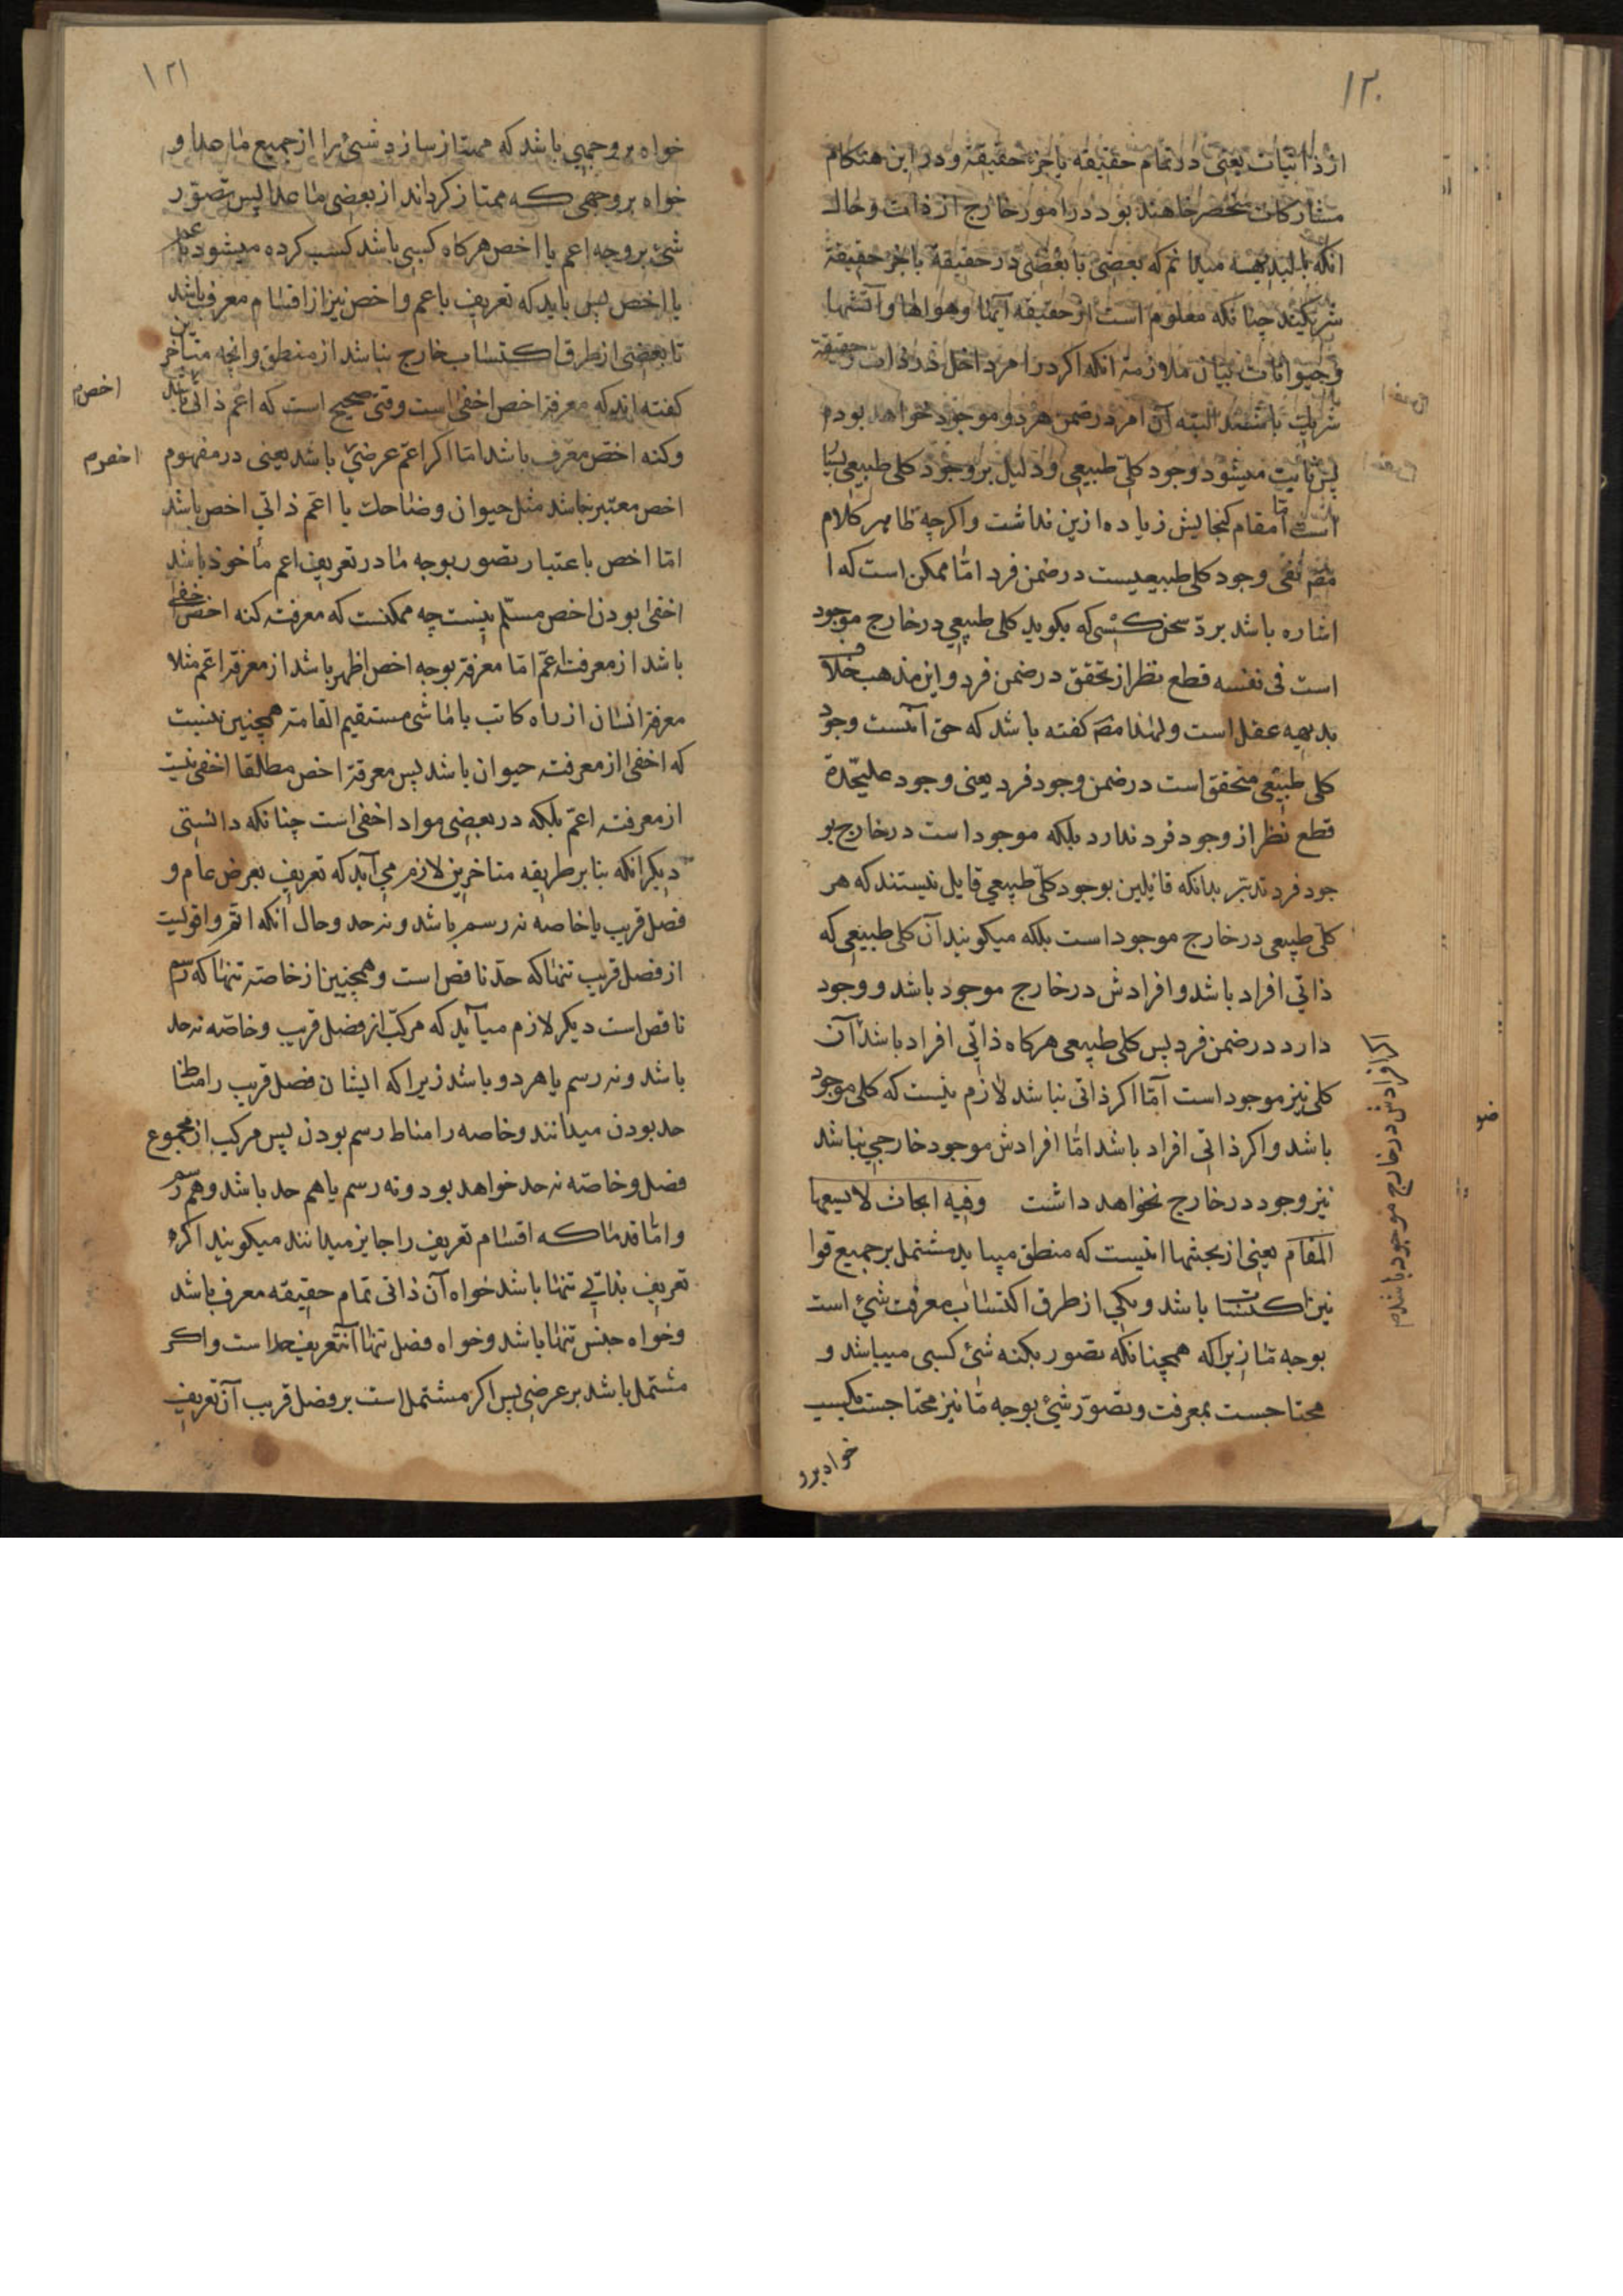 ١٢٠
از ذاتیات یعنی در تمام حقیقه یا جزء حقیقه و در این هنکام
مشارکات منحصر خاهند بود در امور خارج از ذات و حال
انکه بالبدیهیه میدانم که بعضی با بعضی در حقیقة یا جزء حقیقة
شریکند چنانکه معلوم است از حقیقه آبها و هواها و آتشها
و حیوانات بیان ملازمة انکه اکر در امر داخل در ذات و حقیقة
شریک باشند البته آن امر در ضمن هر دو موجود خواهد بود
پس ثابت میشود وجود کلّی طبیعی و دلیل بر وجود کلی طبیعی بسیا
است امّا مقام کنجایش زیاده ازین نداشت و اکرچه ظاهر کلام
مصَ نفی وجود کلی طبیعیست در ضمن فرد امّا ممکن است که ا
اشاره باشد بردّ سخن کسی که بکوید کلی طبیعی در خارج موجود
است فی نفسه قطع نظر از تحقق در ضمن فرد و این مذهب خلاف
بدیهه عقل است و لهذا مصَ کفته باشد که حق آنست وجود
کلی طبیعی متحقق است در ضمن وجود فرد یعنی وجود علیحّدة
قطع نظر از وجود فرد ندارد بلکه موجود است در خارج بو
جود فرد تدبّر بدانکه قایلین بوجود کلّی طبیعی قایل نیستند که هر
کلّی طبیعی در خارج موجود است بلکه میکویند آن کلی طبیعی که
ذاتی افراد باشد و افرادش در خارج موجود باشد و وجود
دارد در ضمن فرد پس کلی طبیعی هرکاه ذاتی افراد باشد آن
کلی نیز موجود است امّا اکر ذاتی نباشد لازم نیست که کلی موجود
باشد و اکر ذاتی افراد باشد امّا افرادش موجود خارجی نباشد
نیز وجود در خارج نخواهد داشت وفیه ابحاث لا یسعها
المقام یعنی از بحثها انیست که منطق میباید مشتمل بر جمیع قوا
نین اکتسا ب باشد و یکی از طرق اکتساب معرفت شیء است
بوجه ما زیرا که همچنانکه تصور بکنه شیء کسبی میباشد و
محتاجست بمعرفت و تصوّر شیء بوجه ما نیز محتاجست بکسب
خواه برو
اکر افرادش در خارج موجود باشدم
١٢١
خواه بر وجهی باشد که ممتاز سازد شیء را از جمیع ما عدا و
خواه بر وجهی که ممتاز کرداند از بعضی ما عدا پس تصوّر
شیء بر وجه اعم یا اخص هرکاه کسبی باشد کسب کرده میشود باعم
یا اخص پس باید که تعریف باعم و اخص نیز از اقسام معرف باشد
تا بعضی از طرق اکتساب خارج نباشد از منطق و انچه متأخرین
کفته اند که معرفة اخص اخفی است وقتی صحیح است که اعم ذاتی باشد
وکنه اخصّ معّرف باشد امّا اکر اعم عرضی باشد یعنی در مفهوم
اخص معتبر نباشد مثل حیوان و ضاحک یا اعم ذاتی اخص باشد
امّا اخص باعتبار تصور بوجه ما در تعریف اعم مأخوذ باشد
اخفی بودن اخص مسلّم نیست چه ممکنست که معرفت کنه اخص اخفی
باشد از معرفت اعم امّا معرفة بوجه اخص اظهر باشد از معرفة اعم مثلا
معرفة انسان از راه کاتب یا ماشی مستقیم القامة همچنین نیست
که اخفی از معرفت حیوان باشد پس معرفة اخص مطلقا اخفی نیست
از معرفت اعمّ بلکه در بعضی مواد اخفی است چنانکه دانستی
دیکر انکه بنا بر طریقه متاخرین لازم می آید که تعریف بعرض عام و
فصل قریب یا خاصه نه رسم باشد و نه حد و حال انکه اتم و اقولیت
از فصل قریب تنها که حدّ ناقص است و همچنین از خاصّه تنها که رسم
ناقص است دیکر لازم میآید که مرکب از فصل قریب و خاصّه نه حد
باشد و نه رسم یا هر دو باشد زیرا که ایشان فصل قریب را مناط
حد بودن میدانند و خاصه را مناط رسم بودن پس مرکب از مجموع
فصل و خاصّه نه حد خواهد بود و نه رسم یا هم حد باشد و هم رسم
و امّا قدما که اقسام تعریف را جایز میدانند میکویند اکر
تعریف بذاتی تنها باشد خواه آن ذاتی تمام حقیقه معرف باشد
و خواه جنس تنها باشد و خواه فصل تنها آن تعریف حد است و اکر
مشتمل باشد بر عرضی پس اکر مشتمل است بر فصل قریب آن تعریف
اخص م
اخص م